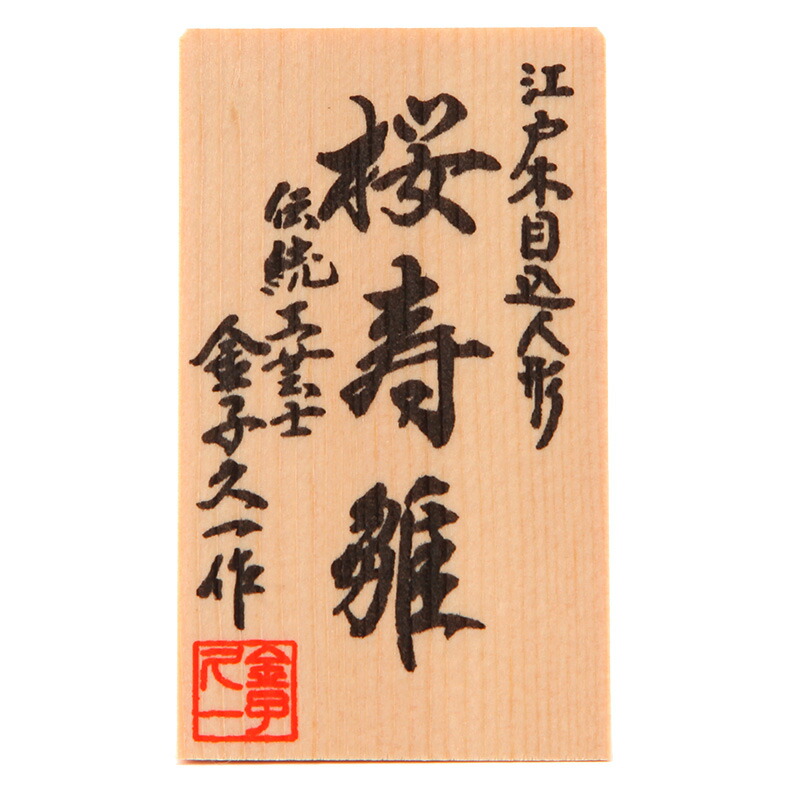 江戸木目込人形
桜寿雛
伝統工芸士
金子久一作
金子
久一